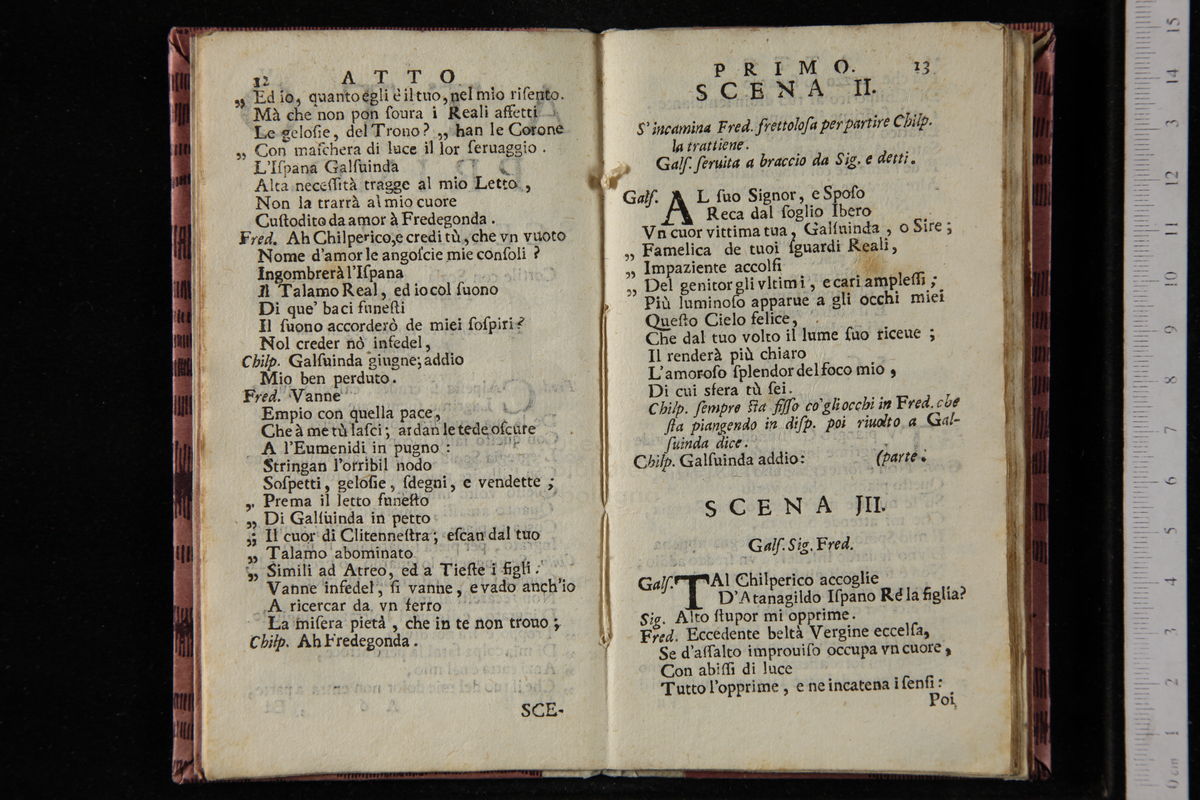 12 ATTO
„ Ed io, quanto egli è il tuo, nel mio riſento.
Mà che non pon ſoura i Reali affetti
Le geloſie, del Trono? „ han le Corone
„ Con maſchera di luce il lor ſeruaggio.
L'Iſpana Galſuinda
Alta neceſſità tragge al mio Letto,
Non la trarrà al mio cuore
Cuſtodito da amor à Fredegonda.
Fred. Ah Chilperico, e credi tù, che vn vuoto
Nome d'amor le angoſcie mie conſoli?
Ingombrerà l'Iſpana
Il Talamo Real, ed io col ſuono
Di que' baci funeſti
Il ſuono accorderò de miei ſoſpiri?
Nol creder nò infedel,
Chilp. Galſuinda giugne; addio
Mio ben perduto.
Fred. Vanne
Empio con quella pace,
Che à me tù laſci; ardan le tede oſcure
A l'Eumenidi in pugno:
Stringan l'orribil nodo
Soſpetti, geloſie, ſdegni, e vendette;
„ Prema il letto funeſto
„ Di Galſuinda in petto
„ Il cuor di Clitenneſtra; eſcan dal tuo
„ Talamo abominato
„ Simili ad Atreo, ed a Tieſte i figli.
Vanne infedel, ſi vanne, e vado anch'io
A ricercar da vn ferro
La miſera pietà, che in te non trouo;
Chilp. Ah Fredegonda.
SCE-
PRIMO. 13
SCENA II.
S'incamina Fred. frettoloſa per partire Chilp.
la trattiene.
Galſ. ſeruita a braccio da Sig. e detti.
Galſ. AL ſuo Signor, e Spoſo
Reca dal ſoglio Ibero
Vn cuor vittima tua, Galſuinda, o Sire;
„ Famelica de tuoi ſguardi Reali,
„ Impaziente accolſi
„ Del genitor gli vltimi, e cari ampleſſi;
Più luminoſo apparue a gli occhi miei
Queſto Cielo felice,
Che dal tuo volto il lume ſuo riceue;
Il renderà più chiaro
L'amoroſo ſplendor del foco mio,
Di cui sfera tù ſei.
Chilp. ſempre ſta fiſſo co' gli occhi in Fred. che
ſta piangendo in diſp. poi riuolto a Gal-
ſuinda dice.
Chilp. Galſuinda addio: (parte.
SCENA III.
Galſ. Sig. Fred.
Galſ. TAl Chilperico accoglie
D'Atanagildo Iſpano Rè la figlia?
Sig. Alto ſtupor mi opprime.
Fred. Eccedente beltà Vergine eccelſa,
Se d'aſſalto improuiſo occupa vn cuore,
Con abiſſi di luce
Tutto l'opprime, e ne incatena i ſenſi:
Poi